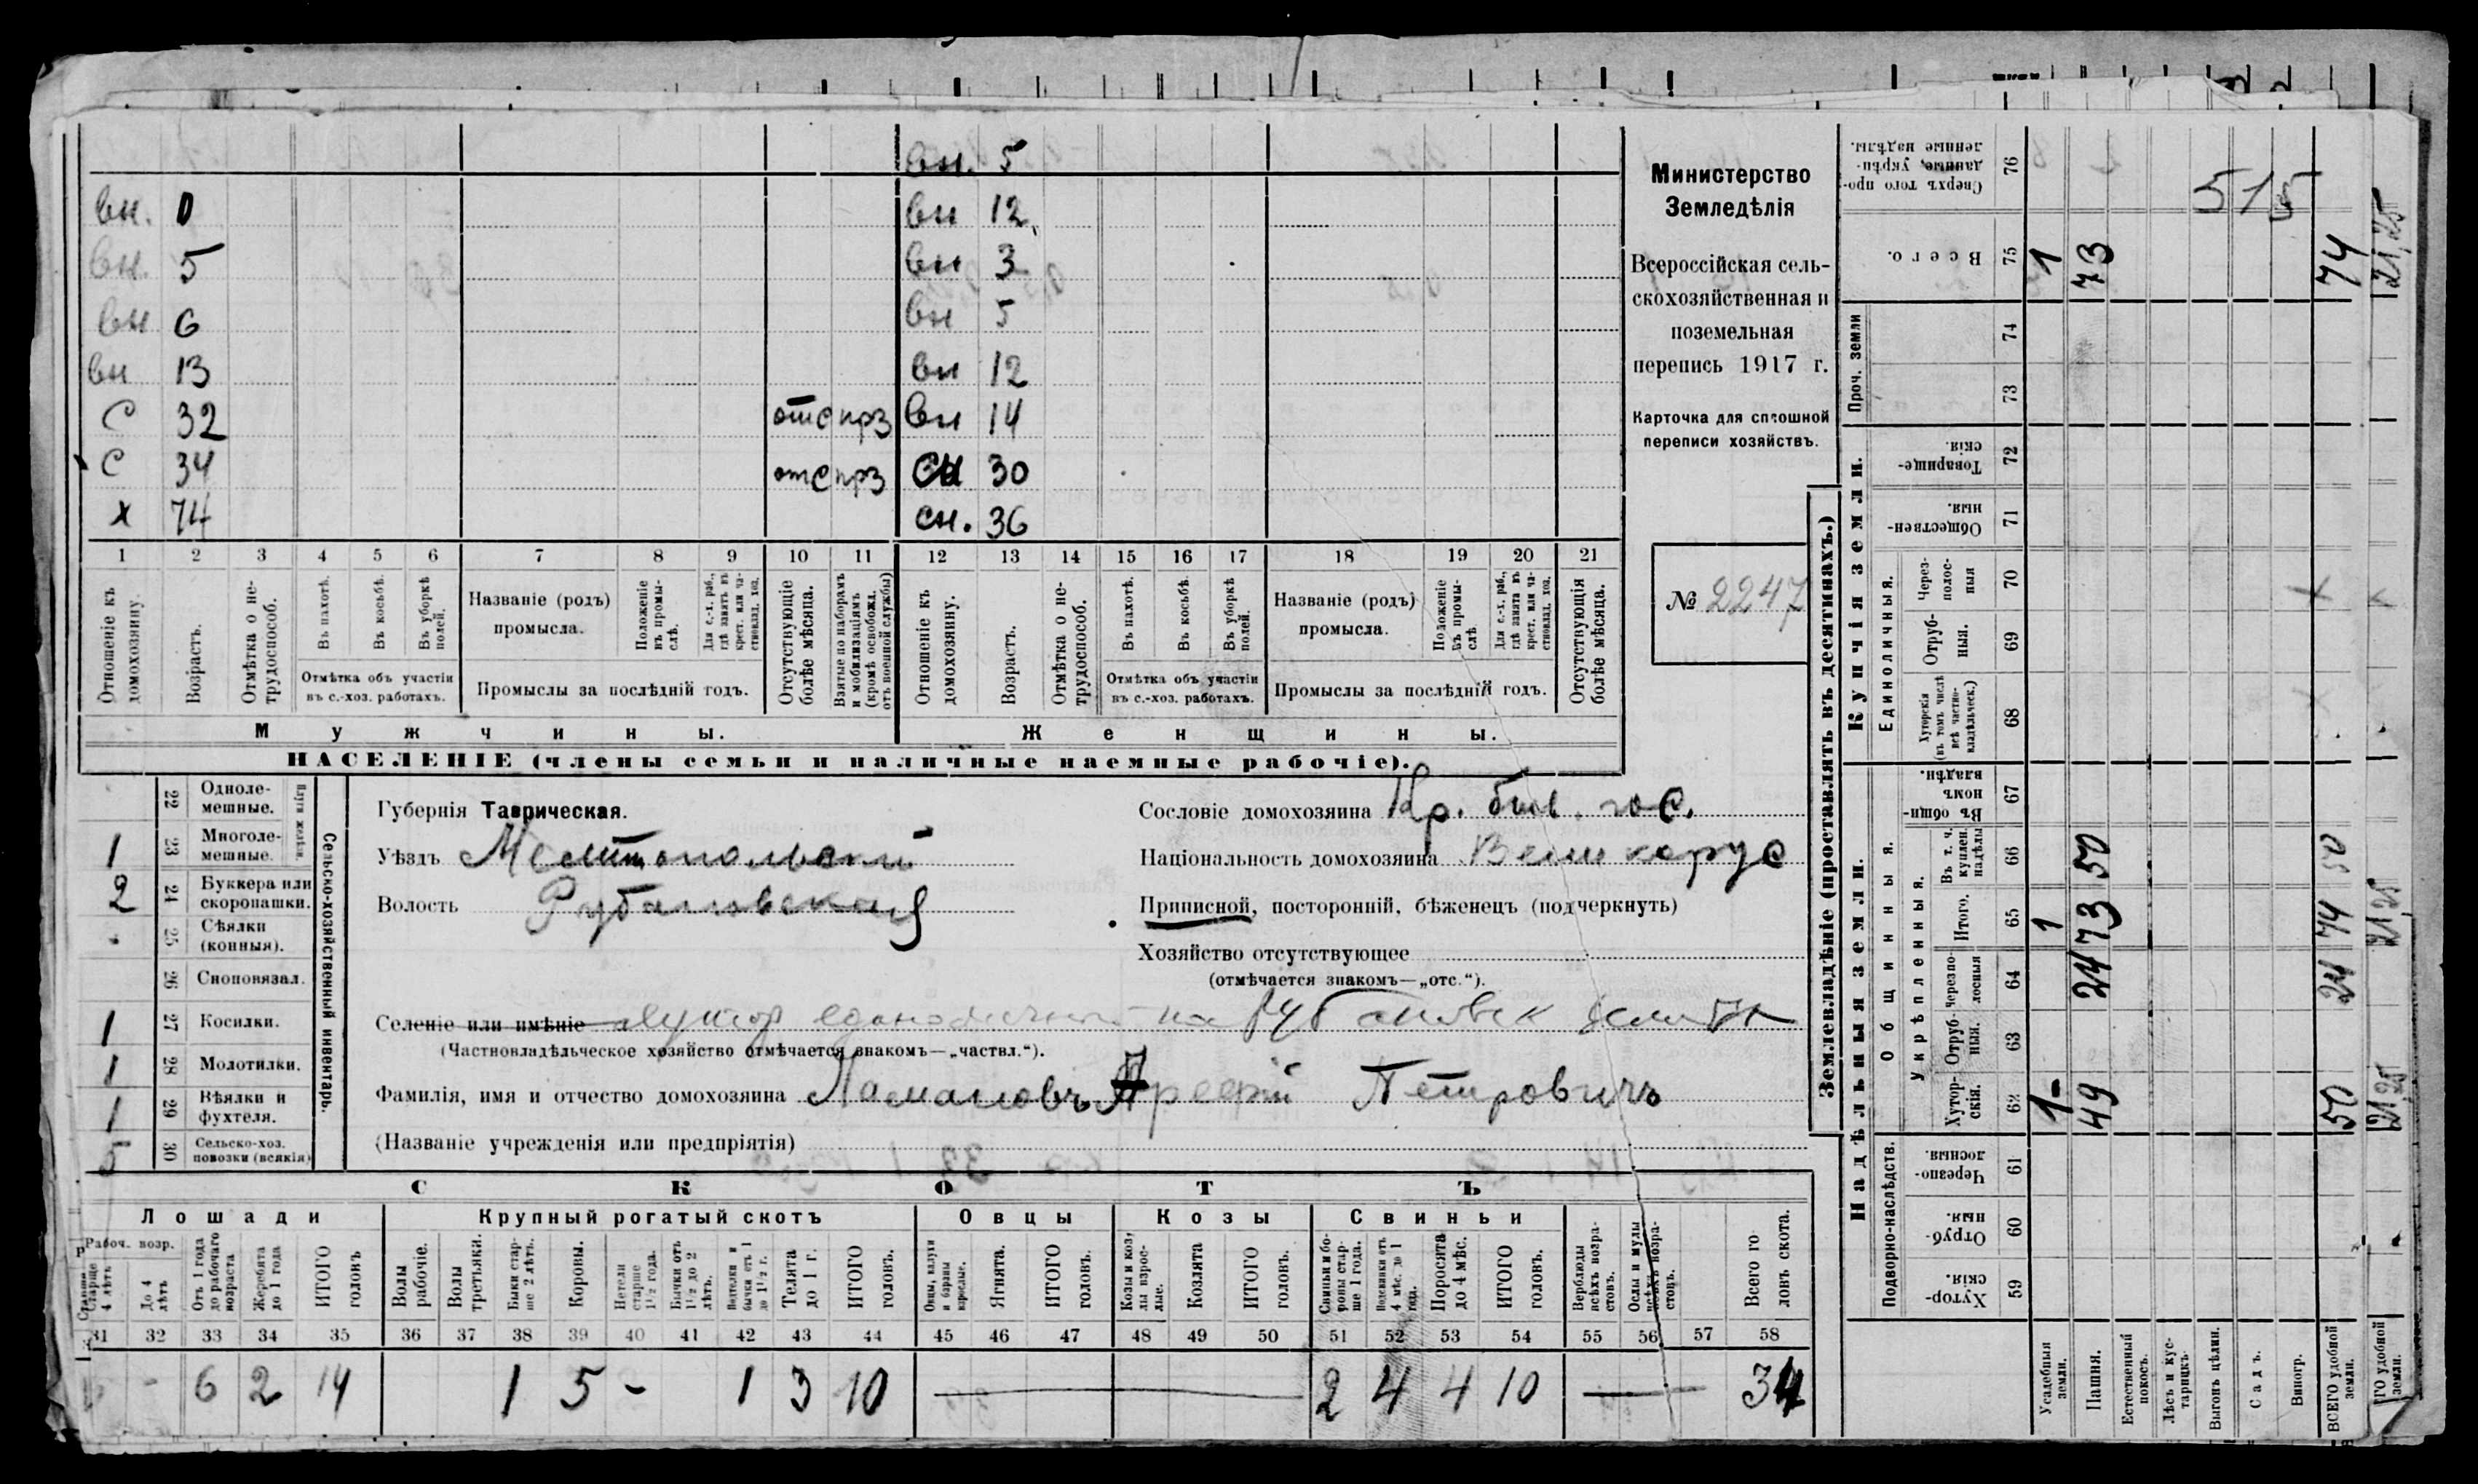 вн. 5
вн. 0 вн 12
вн. 5 вн 3
вн 6 вн 5
вн 13 вн 12
С 32 отс прз вн 14
С 34 отс прз сн 30
х 74 сн. 36
1 2 3 4 5 6 7 8 9 10 11 12 13 14 15 16 17 18 19 20 21
Отношеніе къ домохозяину.
Возрастъ.
Отмѣтка о не-
трудоспособ.
Въ пахотѣ.
Въ косьбѣ.
Въ уборкѣ
полей.
Отмѣтка объ участіи
въ с.-хоз. работахъ.
Названіе (родъ)
промысла.
Положеніе
въ промы-
слѣ.
Для с.-х. раб.,
гдѣ занятъ въ
крест. или ча-
стновлад. хоз.
Промыслы за послѣдній годъ.
Отсутствующіе
болѣе мѣсяца.
Взятые по наборамъ
и мобилизаціямъ
(кромѣ освобожд.
отъ военной службы)
Отношеніе къ
домохозяину.
Возрастъ.
Отмѣтка о не-
трудоспособ.
Въ пахотѣ.
Въ косьбѣ.
Въ уборкѣ
полей.
Отмѣтка объ участіи
въ с.-хоз. работахъ.
Названіе (родъ)
промысла.
Положеніе
въ промы-
слѣ
Для с.-х. раб.,
гдѣ занята въ
крест. или ча-
стновлад. хоз.
Промыслы за послѣдній годъ.
Отсутствующія
болѣе мѣсяца.
Мужчины. Женщины.
НАСЕЛЕНІЕ (члены семьи и наличные наемные рабочіе).
Министерство
Земледѣлія
Всероссійская сель-
скохозяйственная и
поземельная
перепись 1917 г.
Карточка для сплошной
переписи хозяйствъ.
№ 2247
22 Одноле-
мешные.
1 23 Многоле-
мешные.
2 24 Буккера или
скоропашки.
25 Сѣялки
(конныя).
26 Сноповязал.
1 27 Косилки.
1 28 Молотилки.
1 29 Вѣялки и
фухтеля.
5 30 Сельско-хоз.
повозки (всякія)
Сельско-хозяйственный инвентарь.
Губернія Таврическая.
Уѣздъ Мелитопольскій
Волость Рубановская
Селеніе или имѣніе хутор на Рубановск земли
(Частновладѣльческое хозяйство отмѣчается знакомъ—„частвл.“).
Фамилія, имя и отчество домохозяина Петровичъ
(Названіе учрежденія или предпріятія)
Сословіе домохозяина Кр. быв. гос.
Національность домохозяина Великорус
Приписной, посторонній, бѣженецъ (подчеркнуть)
Хозяйство отсутствующее
(отмѣчается знакомъ—„отс.“).
СКОТЪ
Лошади Крупный рогатый скотъ Овцы Козы Свиньи
Рабоч. возр.
Старше
4 лѣтъ
До 4
лѣтъ
Отъ 1 года
до рабочаго
возраста
Жеребята
до 1 года
ИТОГО
головъ
Волы
рабочіе.
Волы
третьяки.
Быки стар-
ше 2 лѣтъ.
Коровы.
Нетели
старше
1½ года.
Бычки отъ
1½ до 2
лѣтъ.
Подтелки и
бычки отъ 1
до 1½ г.
Телята
до 1 г.
ИТОГО
головъ.
Овцы, валухи
и бараны
взрослые.
Ягнята.
ИТОГО
головъ.
Козы и коз-
лы взрос-
лые.
Козлята
ИТОГО
головъ.
Свиньи и бо-
ровы стар-
ше 1 года.
Подсвинки отъ
4 мѣс. до 1
года.
Поросята
до 4 мѣс.
ИТОГО
головъ.
Верблюды
всѣхъ возра-
стовъ.
Ослы и мулы
всѣхъ возра-
стовъ.
Всего го-
ловъ скота.
31 32 33 34 35 36 37 38 39 40 41 42 43 44 45 46 47 48 49 50 51 52 53 54 55 56 57 58
- 6 2 14 1 5 - 1 3 10 2 4 4 10 34
Землевладѣніе (проставлять въ десятинахъ.)
Надѣльныя земли. Купчія земли.
Подворно-наслѣдств.
Общинныя.
Укрѣпленныя.
Единоличныя.
Проч. земли
Хутор-
скія. 59
Отруб-
ныя. 60
Черезпо-
лосныя. 61
Хутор-
скія. 62
Отруб-
ныя. 63
Черезпо-
лосныя 64
Итого. 65
Въ т. ч.
куплен.
надѣлы 66
Въ общин-
номъ
владѣн. 67
Хуторскія
(въ томъ числѣ
всѣ частно-
владѣльческ.) 68
Отруб-
ныя. 69
Через-
полос-
ныя 70
Обществен-
ныя. 71
Товарище-
скія. 72
73
74
Всего. 75
Сверхъ того про-
данные, укрѣп-
ленные надѣлы. 76
Усадебныя
земли. 1 1 1
Пашня. 49 24 73 50 73
Естественный
покосъ.
Лѣсъ и кус-
тарникъ.
Выгонъ цѣлин.
Садъ.
Виногр.
ВСЕГО удобной
земли. 50 24 74 50 74
ГО удобной
земли. 21,25 21,25 21,25
515